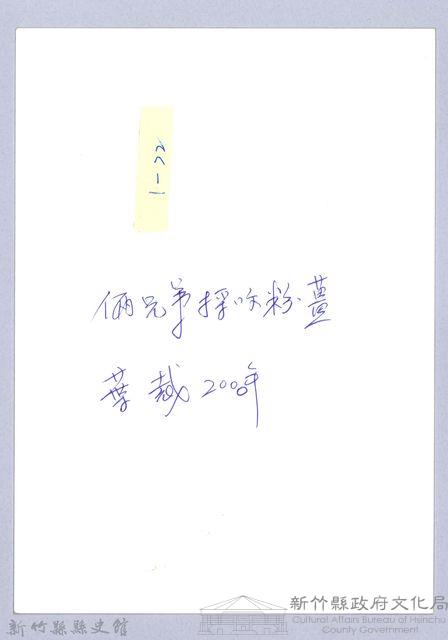 1-72
倆兄弟採收粉薑
葉裁 2000年
新竹縣縣史館
新竹縣政府文化局
Cultural Affairs Bureau of Hsinchu
County Government